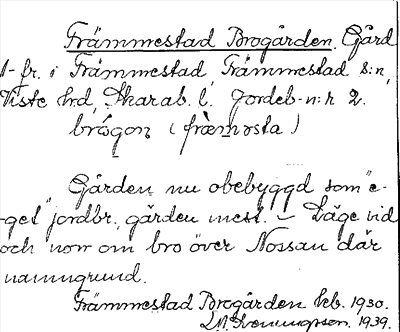 Främmestad Brogården. Gård
1-fr. i Främmestad Främmestad s:n,
Viste hd, Skarab. l. Jordeb-n:r 2.
(fræmasta)
Gården nu obebyggd som "e-
get" jordbr. gården mest. – Läge vid
och norr om bro över Nossan där
namngrund.
Främmestad Brogården hb. 1930.
1939.